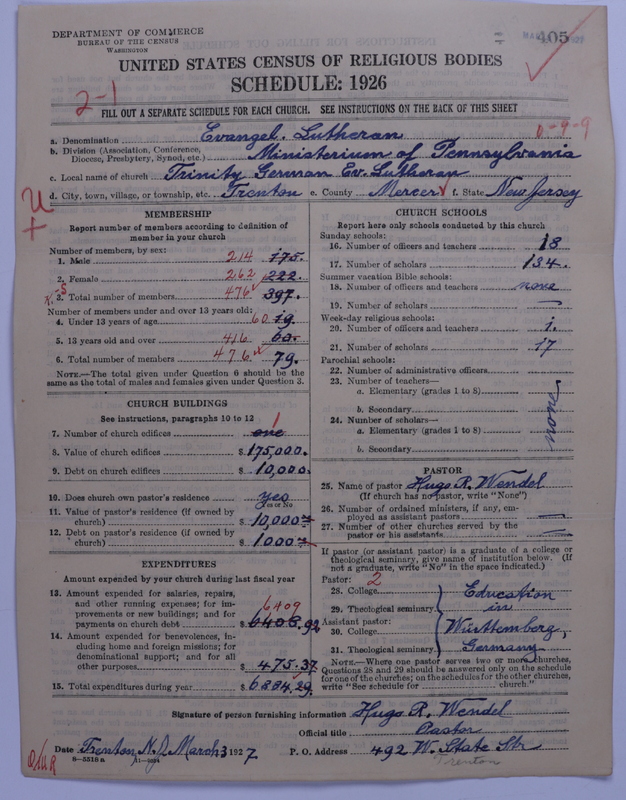 DEPARTMENT OF COMMERCE
BUREAU OF THE CENSUS
WASHINGTON
405
UNITED STATES CENSUS OF RELIGIOUS BODIES
SCHEDULE: 1926
2-1
FILL OUT A SEPARATE SCHEDULE FOR EACH CHURCH. SEE INSTRUCTIONS ON THE BACK OF THIS SHEET
a. Denomination Evangel. Lutheran
b. Division (Association, Conference, Diocese, Presbytery, Synod, etc.) Ministerium of Pennsylvania
c. Local name of church Trinity German Ev. Lutheran
d. City, town, village, or township, etc. Trenton e. County Mercer f. State New Jersey
MEMBERSHIP
Report number of members according to definition of member in your church
Number of members, by sex:
1. Male 214 175.
2. Female 262 222.
3. Total number of members 476 397.
Number of members under and over 13 years old:
4. Under 13 years of age 60 19.
5. 13 years old and over 416 60.
6. Total number of members 476 79.
NOTE.—The total given under Question 6 should be the same as the total of males and females given under Question 3.
CHURCH BUILDINGS
See instructions, paragraphs 10 to 12
7. Number of church edifices one 1
8. Value of church edifices $175,000.
9. Debt on church edifices $10,000.
10. Does church own pastor's residence yes
Yes or No
11. Value of pastor's residence (if owned by church) $10,000
12. Debt on pastor's residence (if owned by church) $1000
EXPENDITURES
Amount expended by your church during last fiscal year
13. Amount expended for salaries, repairs, and other running expenses; for improvements or new buildings; and for payments on church debt 6409 $6408.92
14. Amount expended for benevolences, including home and foreign missions; for denominational support; and for all other purposes $475.37
15. Total expenditures during year $6884.29
CHURCH SCHOOLS
Report here only schools conducted by this church
Sunday schools:
16. Number of officers and teachers 18
17. Number of scholars 134.
Summer vacation Bible schools:
18. Number of officers and teachers none
19. Number of scholars —
Week-day religious schools:
20. Number of officers and teachers 1.
21. Number of scholars 17
Parochial schools:
22. Number of administrative officers
23. Number of teachers—
a. Elementary (grades 1 to 8)
b. Secondary
24. Number of scholars—
a. Elementary (grades 1 to 8)
b. Secondary
none
PASTOR
25. Name of pastor Hugo R. Wendel
(If church has no pastor, write "None")
26. Number of ordained ministers, if any, employed as assistant pastors —
27. Number of other churches served by the pastor or his assistants —
If pastor (or assistant pastor) is a graduate of a college or theological seminary, give name of institution below. (If not a graduate, write "No" in the space indicated.)
Pastor: 2
28. College
29. Theological seminary
Assistant pastor:
30. College
31. Theological seminary
Education
in
Württemberg,
Germany
NOTE.—Where one pastor serves two or more churches, Questions 28 and 29 should be answered only on the schedule for one of the churches; on the schedules for the other churches, write "See schedule for church."
Signature of person furnishing information Hugo R. Wendel
Official title Pastor
Date Trenton, N.J. March 3 1927 P. O. Address 492 W. State Str
Trenton
8—5518 a